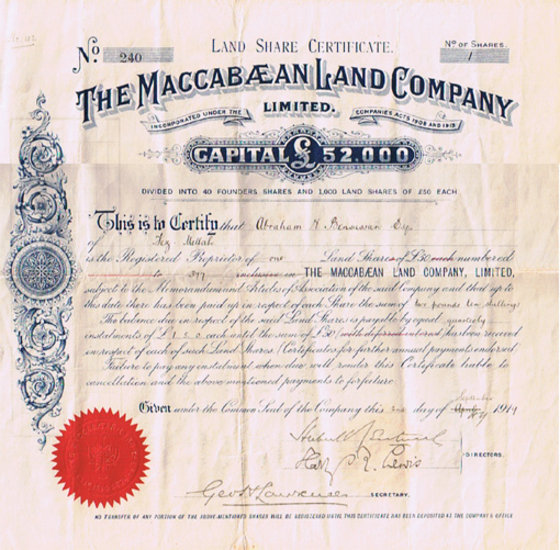 No. 240
LAND SHARE CERTIFICATE.
No OF SHARES.
1
THE MACCABÆAN LAND COMPANY
LIMITED.
INCORPORATED UNDER THE COMPANIES ACTS 1908 AND 1913
CAPITAL £ 52,000
DIVIDED INTO 40 FOUNDERS SHARES AND 1,000 LAND SHARES OF £50 EACH.
This is to Certify that Abraham H Esq.
of Fez Mellah
is the Registered Proprietor of one Land Shares of £50 each numbered
to 377 inclusive in THE MACCABÆAN LAND COMPANY, LIMITED,
subject to the Memorandum and Articles of Association of the said Company and that up to
this date there has been paid up in respect of each Share the sum of two pounds ten shillings
The balance due in respect of the said Land Shares is payable by equal quarterly
instalments of £ 1.5.0 each until the sum of £50 (with deferred interest) has been received
in respect of each of such Land Shares. (Certificates for further annual payments endorsed
Failure to pay any instalment when due will render this Certificate liable to
cancellation and the above mentioned payments to forfeiture.
September
Given under the Common Seal of the Company this 2nd day of April 1914
Harry S. Lewis
DIRECTORS.
SECRETARY.
NO TRANSFER OF ANY PORTION OF THE ABOVE-MENTIONED SHARES WILL BE REGISTERED UNTIL THIS CERTIFICATE HAS BEEN DEPOSITED AT THE COMPANY'S OFFICE